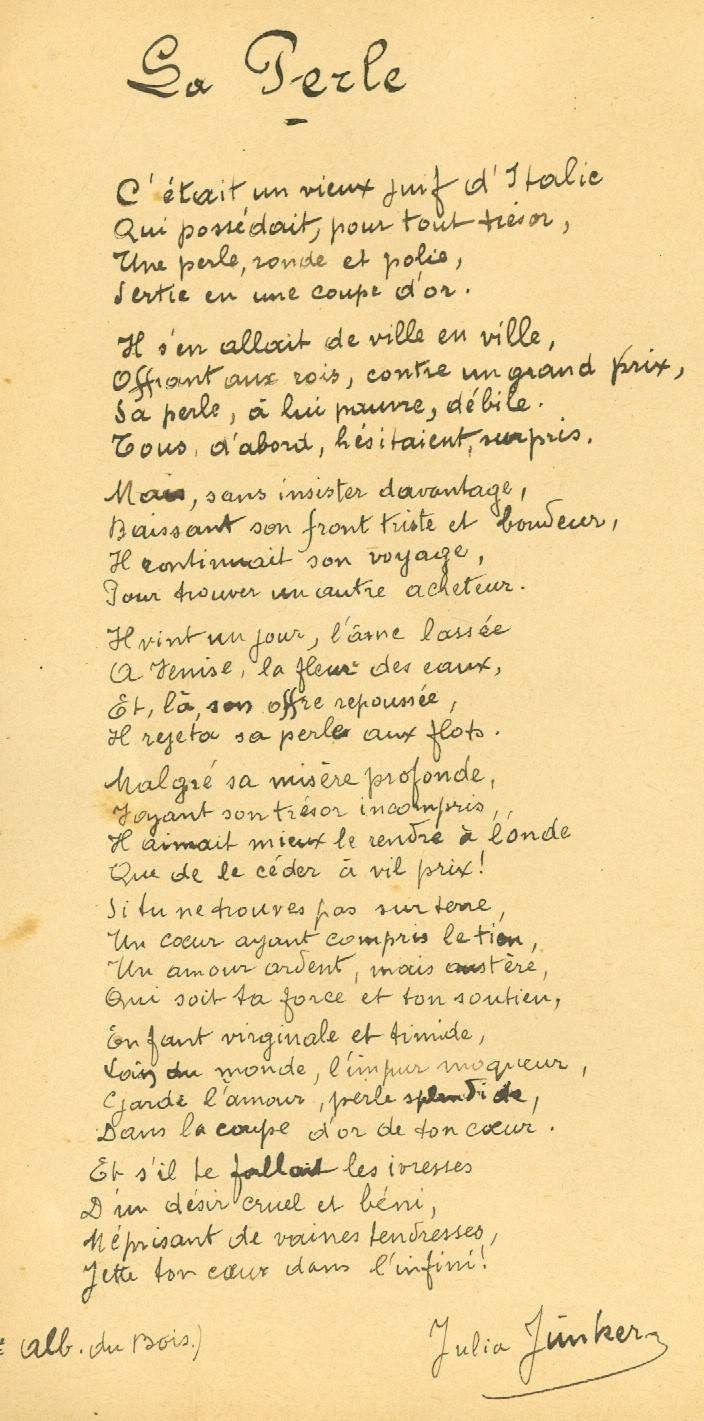 La Perle
C'était un vieux juif d'Italie
Qui possédait, pour tout trésor,
Une perle, ronde et polie,
Sertie en une coupe d'or.
Il s'en allait de ville en ville,
Offrant aux rois, contre un grand prix,
Sa perle, à lui pauvre, débile.
Tous, d'abord, hésitaient, surpris.
Mais, sans insister davantage,
Baissant son front triste et boudeur,
Il continuait son voyage,
Pour trouver un autre acheteur.
Il vint un jour, l'âme lassée
A Venise, la fleur des eaux,
Et, là, son offre repoussée,
Il rejeta sa perle aux flots.
Malgré sa misère profonde,
Voyant son trésor incompris,
Il aimait mieux le rendre à l'onde
Que de le céder à vil prix!
Si tu ne trouves pas sur terre,
Un cœur ayant compris le tien,
Un amour ardent, mais austère,
Qui soit ta force et ton soutien,
Enfant virginale et timide,
Loin du monde, l'impur moqueur,
Garde l'amour, perle splendide,
Dans la coupe d'or de ton cœur.
Et s'il te fallait les ivresses
D'un désir cruel et béni,
Méprisant de vaines tendresses,
Jette ton cœur dans l'infini!
(Alb. du Bois.)
Julia Jünker